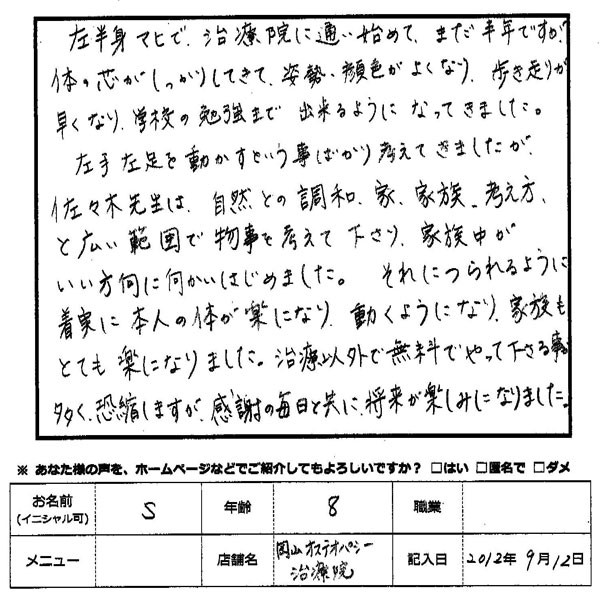 左半身マヒで、治療院に通い始めて、まだ半年ですが、
体の芯がしっかりしてきて、姿勢・顔色がよくなり、歩き走りが
早くなり、学校の勉強まで出来るようになってきました。
左手左足を動かすという事ばかり考えてきましたが、
佐々木先生は、自然との調和、家、家族、考え方、
と広い範囲で物事を考えて下さり、家族中が
いい方向に向かいはじめました。それにつられるように
着実に本人の体が楽になり、動くようになり、家族も
とても楽になりました。治療以外で無料でやって下さる事も
多く、恐縮しますが、感謝の毎日と共に、将来が楽しみになりました。
※ あなた様の声を、ホームページなどでご紹介してもよろしいですか? □はい □匿名で □ダメ
お名前 (イニシャル可) S 年齢 8 職業
メニュー 店舗名 岡山オステオパシー治療院 記入日 2012年 9月12日